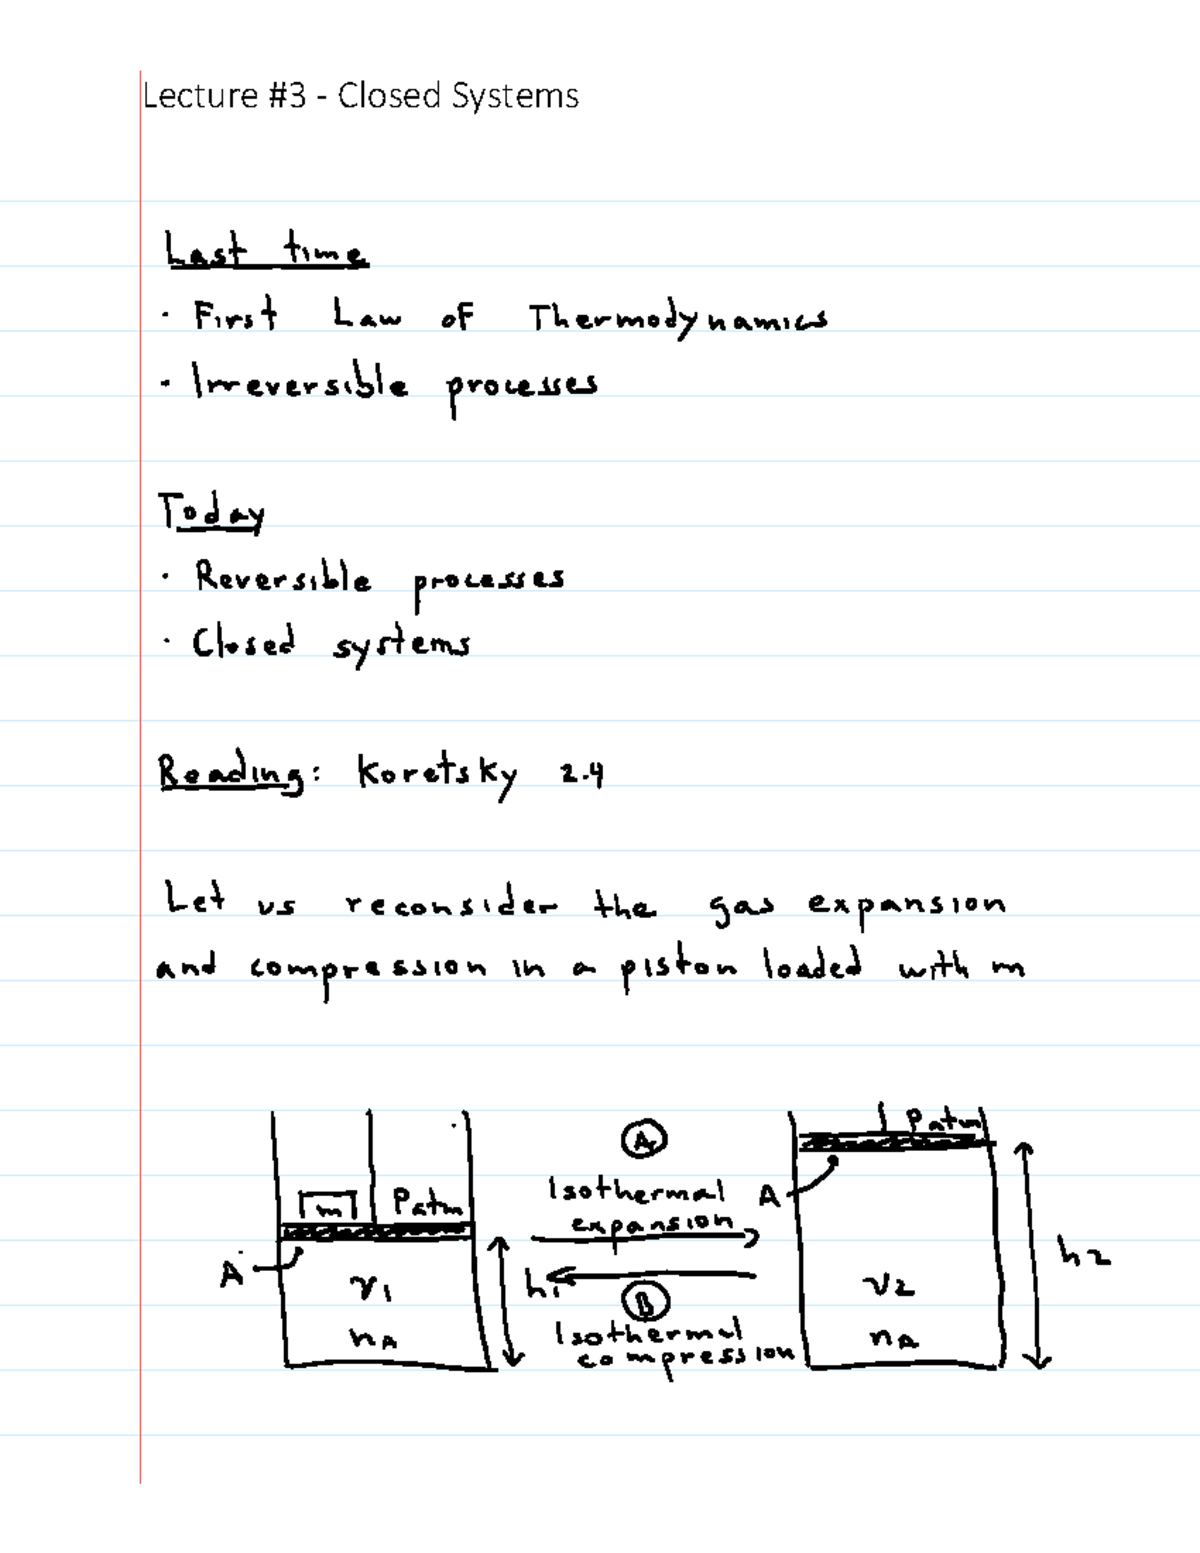 Lecture #3 - Closed Systems
Last time
· First Law of Thermodynamics
· Irreversible processes
Today
· Reversible processes
· Closed systems
Reading: Koretsky 2.4
Let us reconsider the gas expansion
and compression in a piston loaded with m
A
Isothermal
expansion
m Patm
A
v1
nA
h1
B
Isothermal
compression
Patm
A
v2
nA
h2